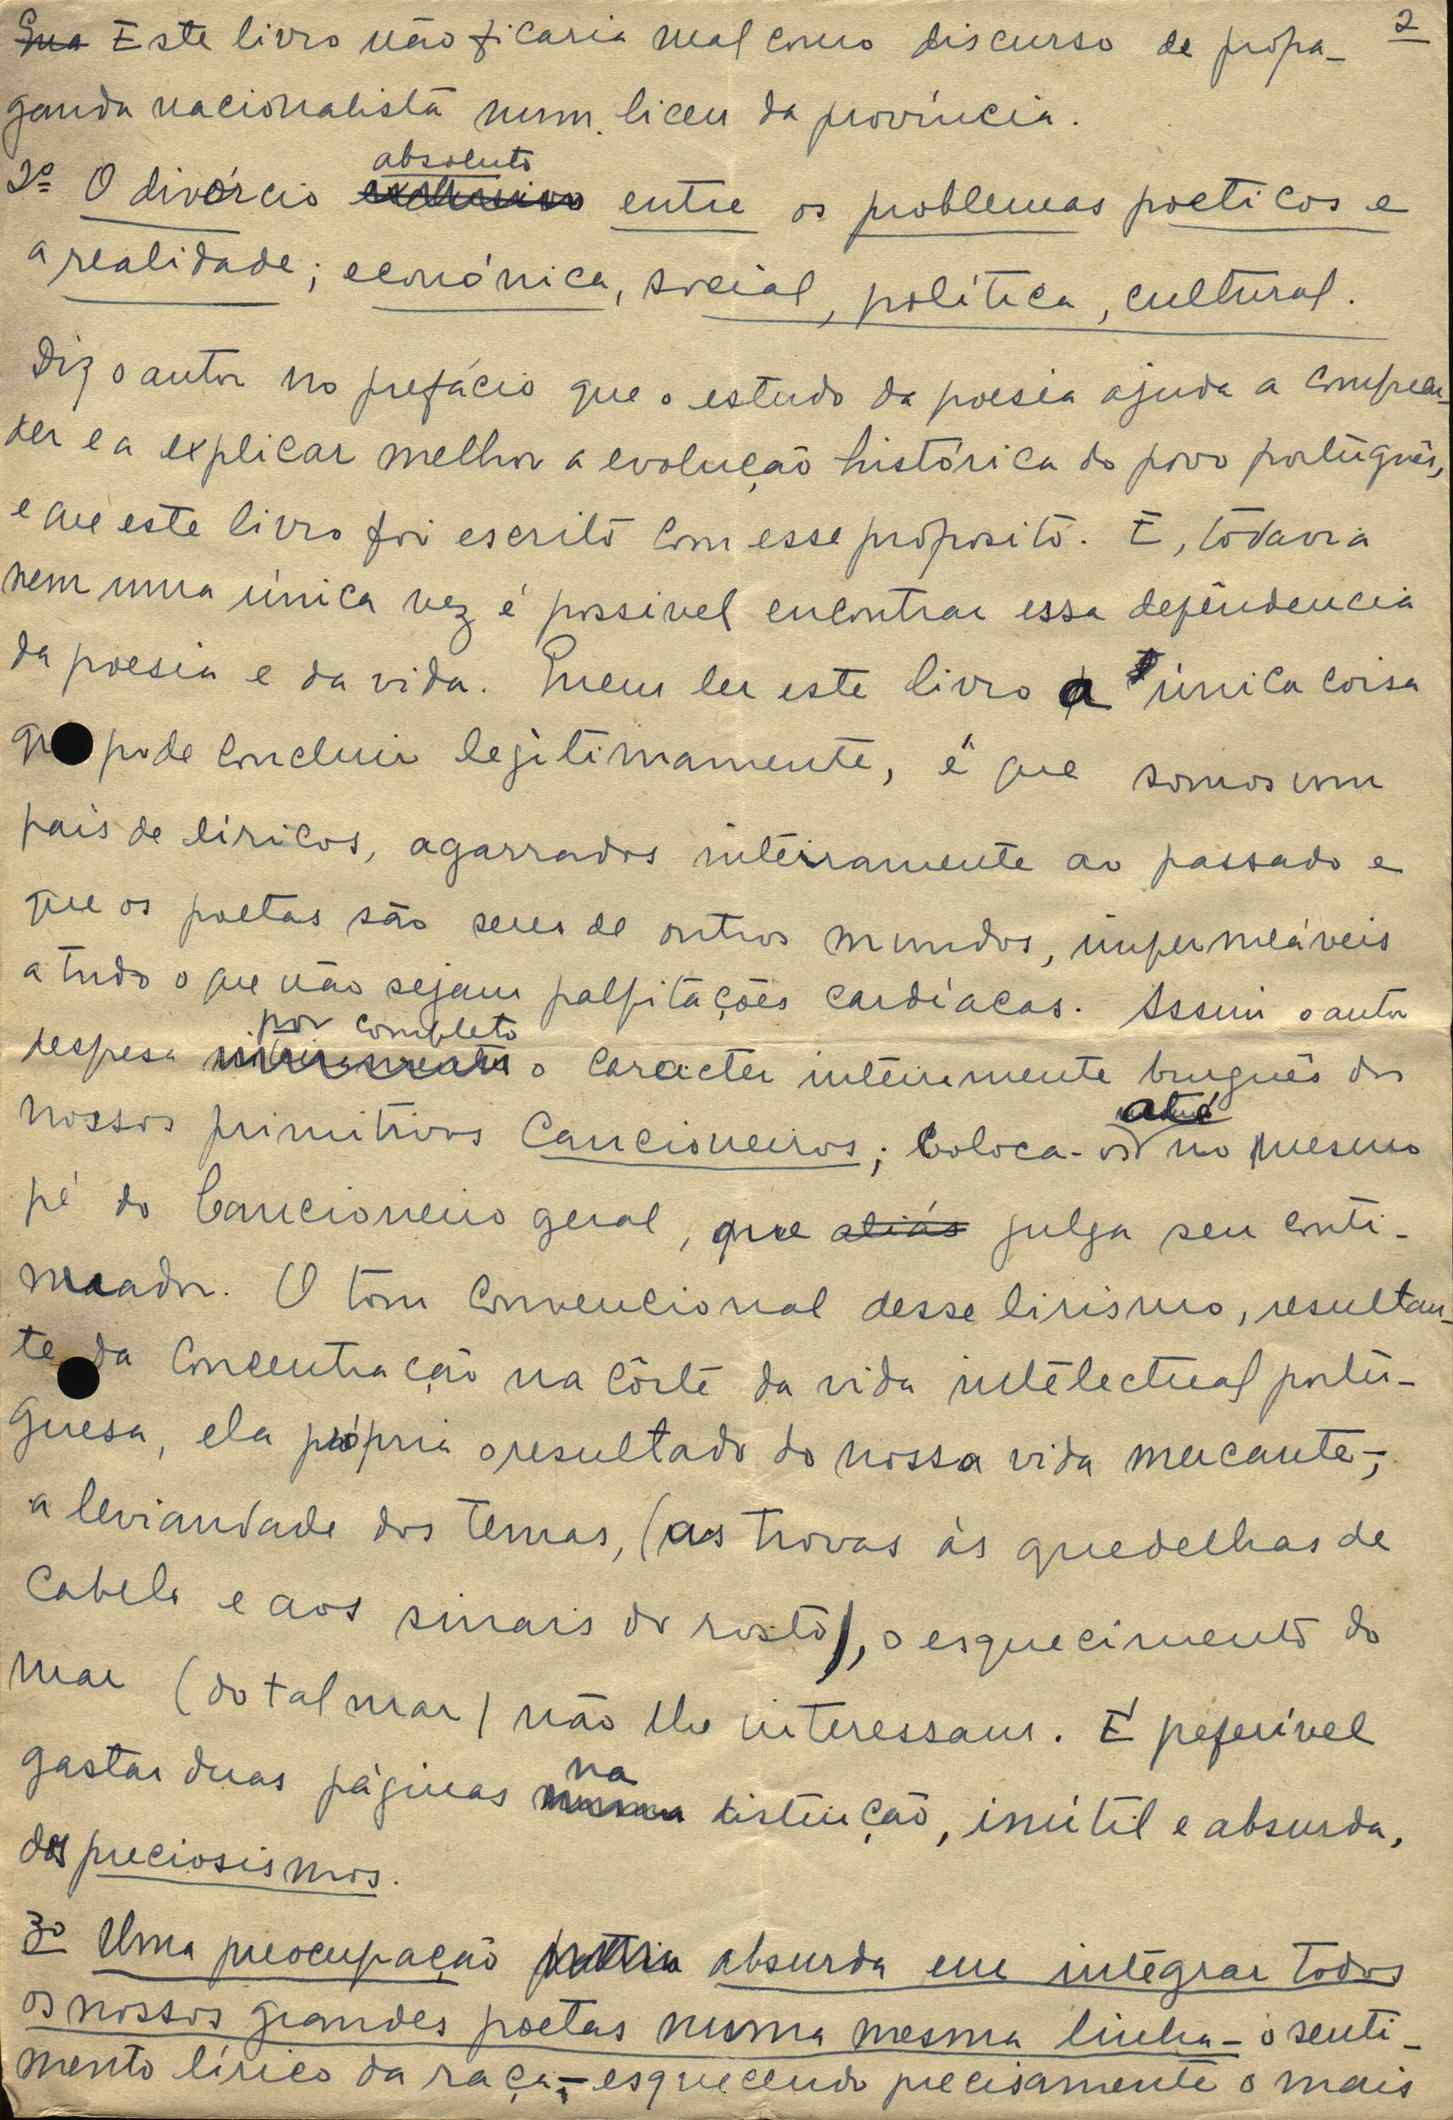 2
Sua Este livro não ficaria mal como discurso de propa-
ganda nacionalista num liceu da província.
absoluto
2º O divórcio exclusivo entre os problemas poeticos e
a realidade; económica, social, política, cultural.
Diz o autor no prefácio que o estudo da poesia ajuda a compreen-
der e a explicar melhor a evolução histórica do povo português,
e que este livro foi escrito com esse proposito. E, todavia
nem uma única vez é possivel encontrar essa dependencia
da poesia e da vida. Quem ler este livro a única coisa
que pode concluir legitimamente, é que somos um
país de líricos, agarrados inteiramente ao passado e
que os poetas são seres de outros mundos, impermeáveis
a tudo o que não sejam palpitações cardíacas. Assim o autor
por completo
despesa o caracter inteiramente burguês dos
até
nossos primitivos Cancioneiros; coloca-os no mesmo
pé do Cancioneiro geral, que aliás julga seu conti-
nuador. O tom convencional desse lirismo, resultan-
te da concentração na côrte da vida intelectual portu-
guesa, ela própria o resultado do nossa vida mercante-;
a leviandade dos temas, (as trovas às guedelhas de
cabelo e aos sinais do rosto), o esquecimento do
mar (do tal mar) não lhe interessam. É preferível
na
gastar duas páginas numa distinção, inútil e absurda,
dos preciosismos.
3º Uma preocupação absurda em integrar todos
os nossos grandes poetas numa mesma linha - o senti-
mento lírico da raça -, esquecendo precisamente o mais